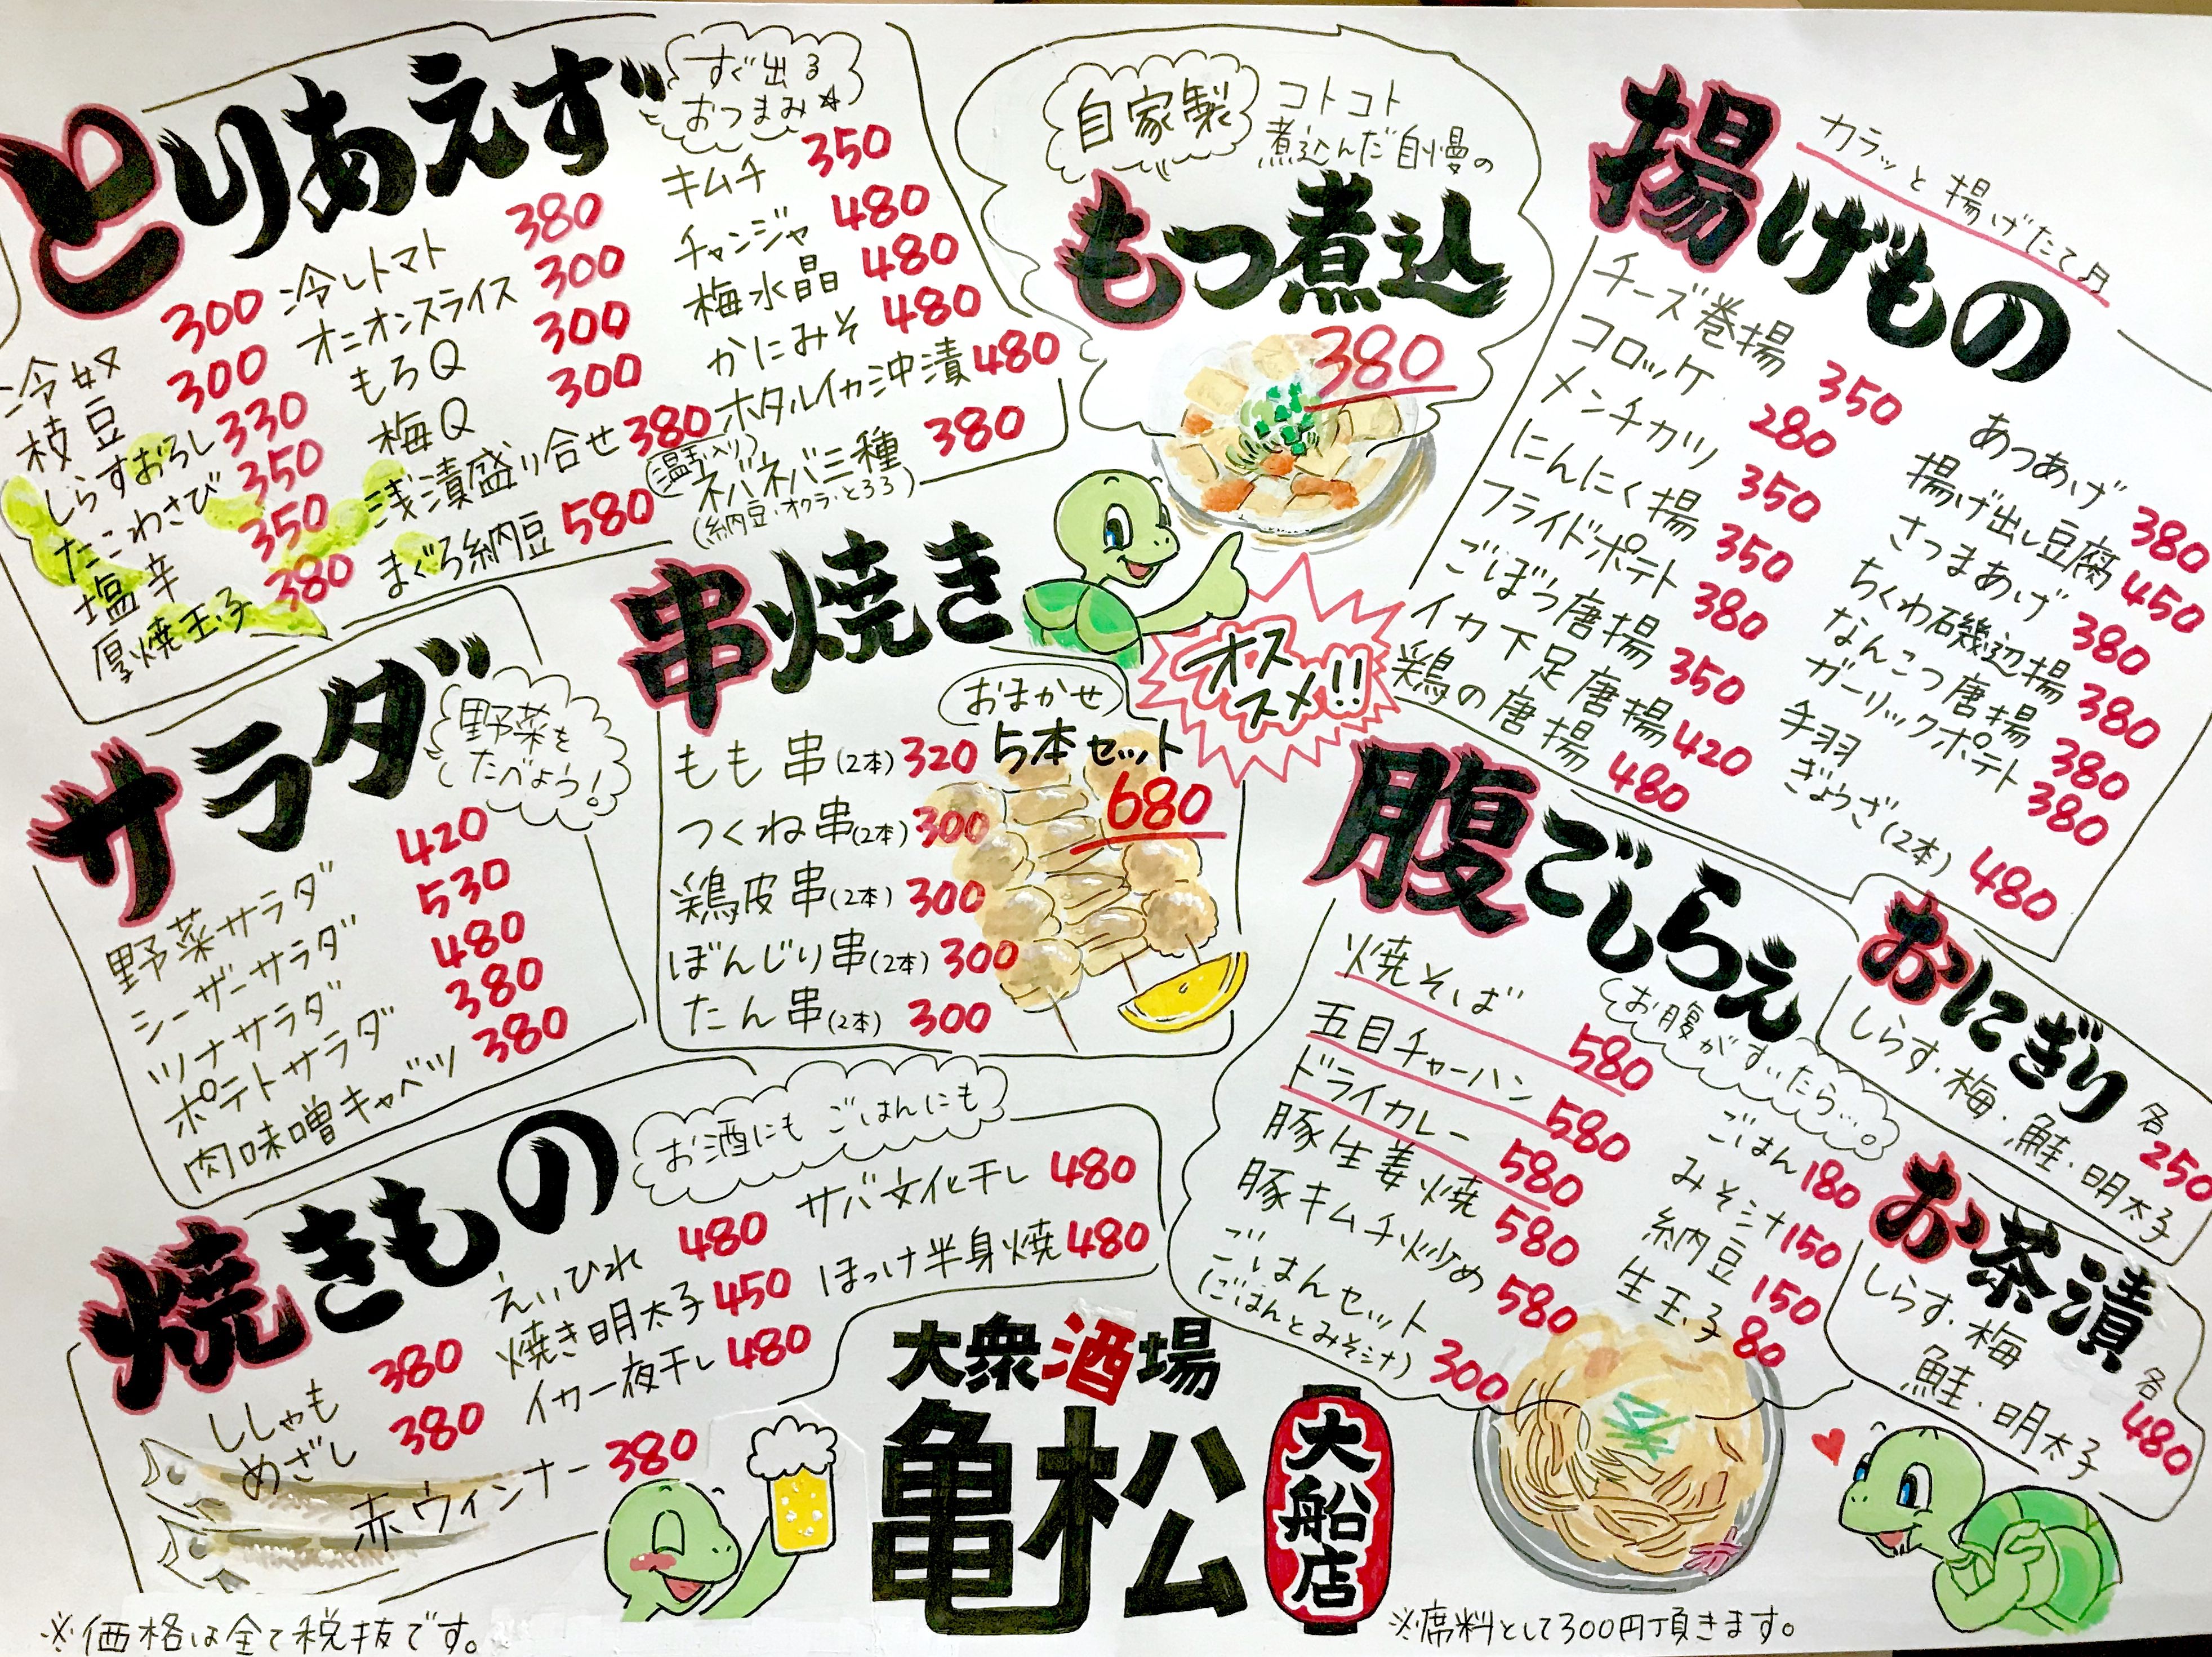 とりあえず
すぐ出る
おつまみ☆
冷奴 300
枝豆 300
しらすおろし 330
たこわさび 350
塩辛 350
厚焼玉子 380
冷しトマト 380
オニオンスライス 300
もろQ 300
梅Q 300
浅漬盛り合せ 380
まぐろ納豆 580
キムチ 350
チャンジャ 480
梅水晶 480
かにみそ 480
ホタルイカ沖漬 480
(温玉入り)
ネバネバ三種 380
(納豆・オクラ・とろろ)
自家製
コトコト
煮込んだ自慢の
もつ煮込
380
揚げもの
カラッと揚げたて♬
チーズ巻揚 350
コロッケ 280
メンチカツ 350
にんにく揚 350
フライドポテト 380
ごぼう唐揚 350
イカ下足唐揚 420
鶏の唐揚 480
あつあげ 380
揚げ出し豆腐 450
さつまあげ 380
ちくわ磯辺揚 380
なんこつ唐揚 380
ガーリックポテト 380
手羽
ぎょうざ(2本) 480
サラダ
野菜を
たべよう!
野菜サラダ 420
シーザーサラダ 530
ツナサラダ 480
ポテトサラダ 380
肉味噌キャベツ 380
串焼き
もも串(2本) 320
つくね串(2本) 300
鶏皮串(2本) 300
ぼんじり串(2本) 300
たん串(2本) 300
おまかせ
5本セット
680
オス
スメ!!
腹ごしらえ
お腹がすいたら…。
焼そば 580
五目チャーハン 580
ドライカレー 580
豚生姜焼 580
豚キムチ炒め 580
ごはんセット
(ごはんとみそ汁) 300
ごはん 180
みそ汁 150
納豆 150
生玉子 80
おにぎり
しらす・梅・鮭・明太子
各250
お茶漬
しらす・梅
鮭・明太子
各480
焼きもの
お酒にもごはんにも
ししゃも 380
めざし 380
赤ウィンナー 380
えいひれ 480
焼き明太子 450
イカ一夜干し 480
サバ文化干し 480
ほっけ半身焼 480
大衆酒場
亀松
大船店
※価格は全て税抜です。
※席料として300円頂きます。